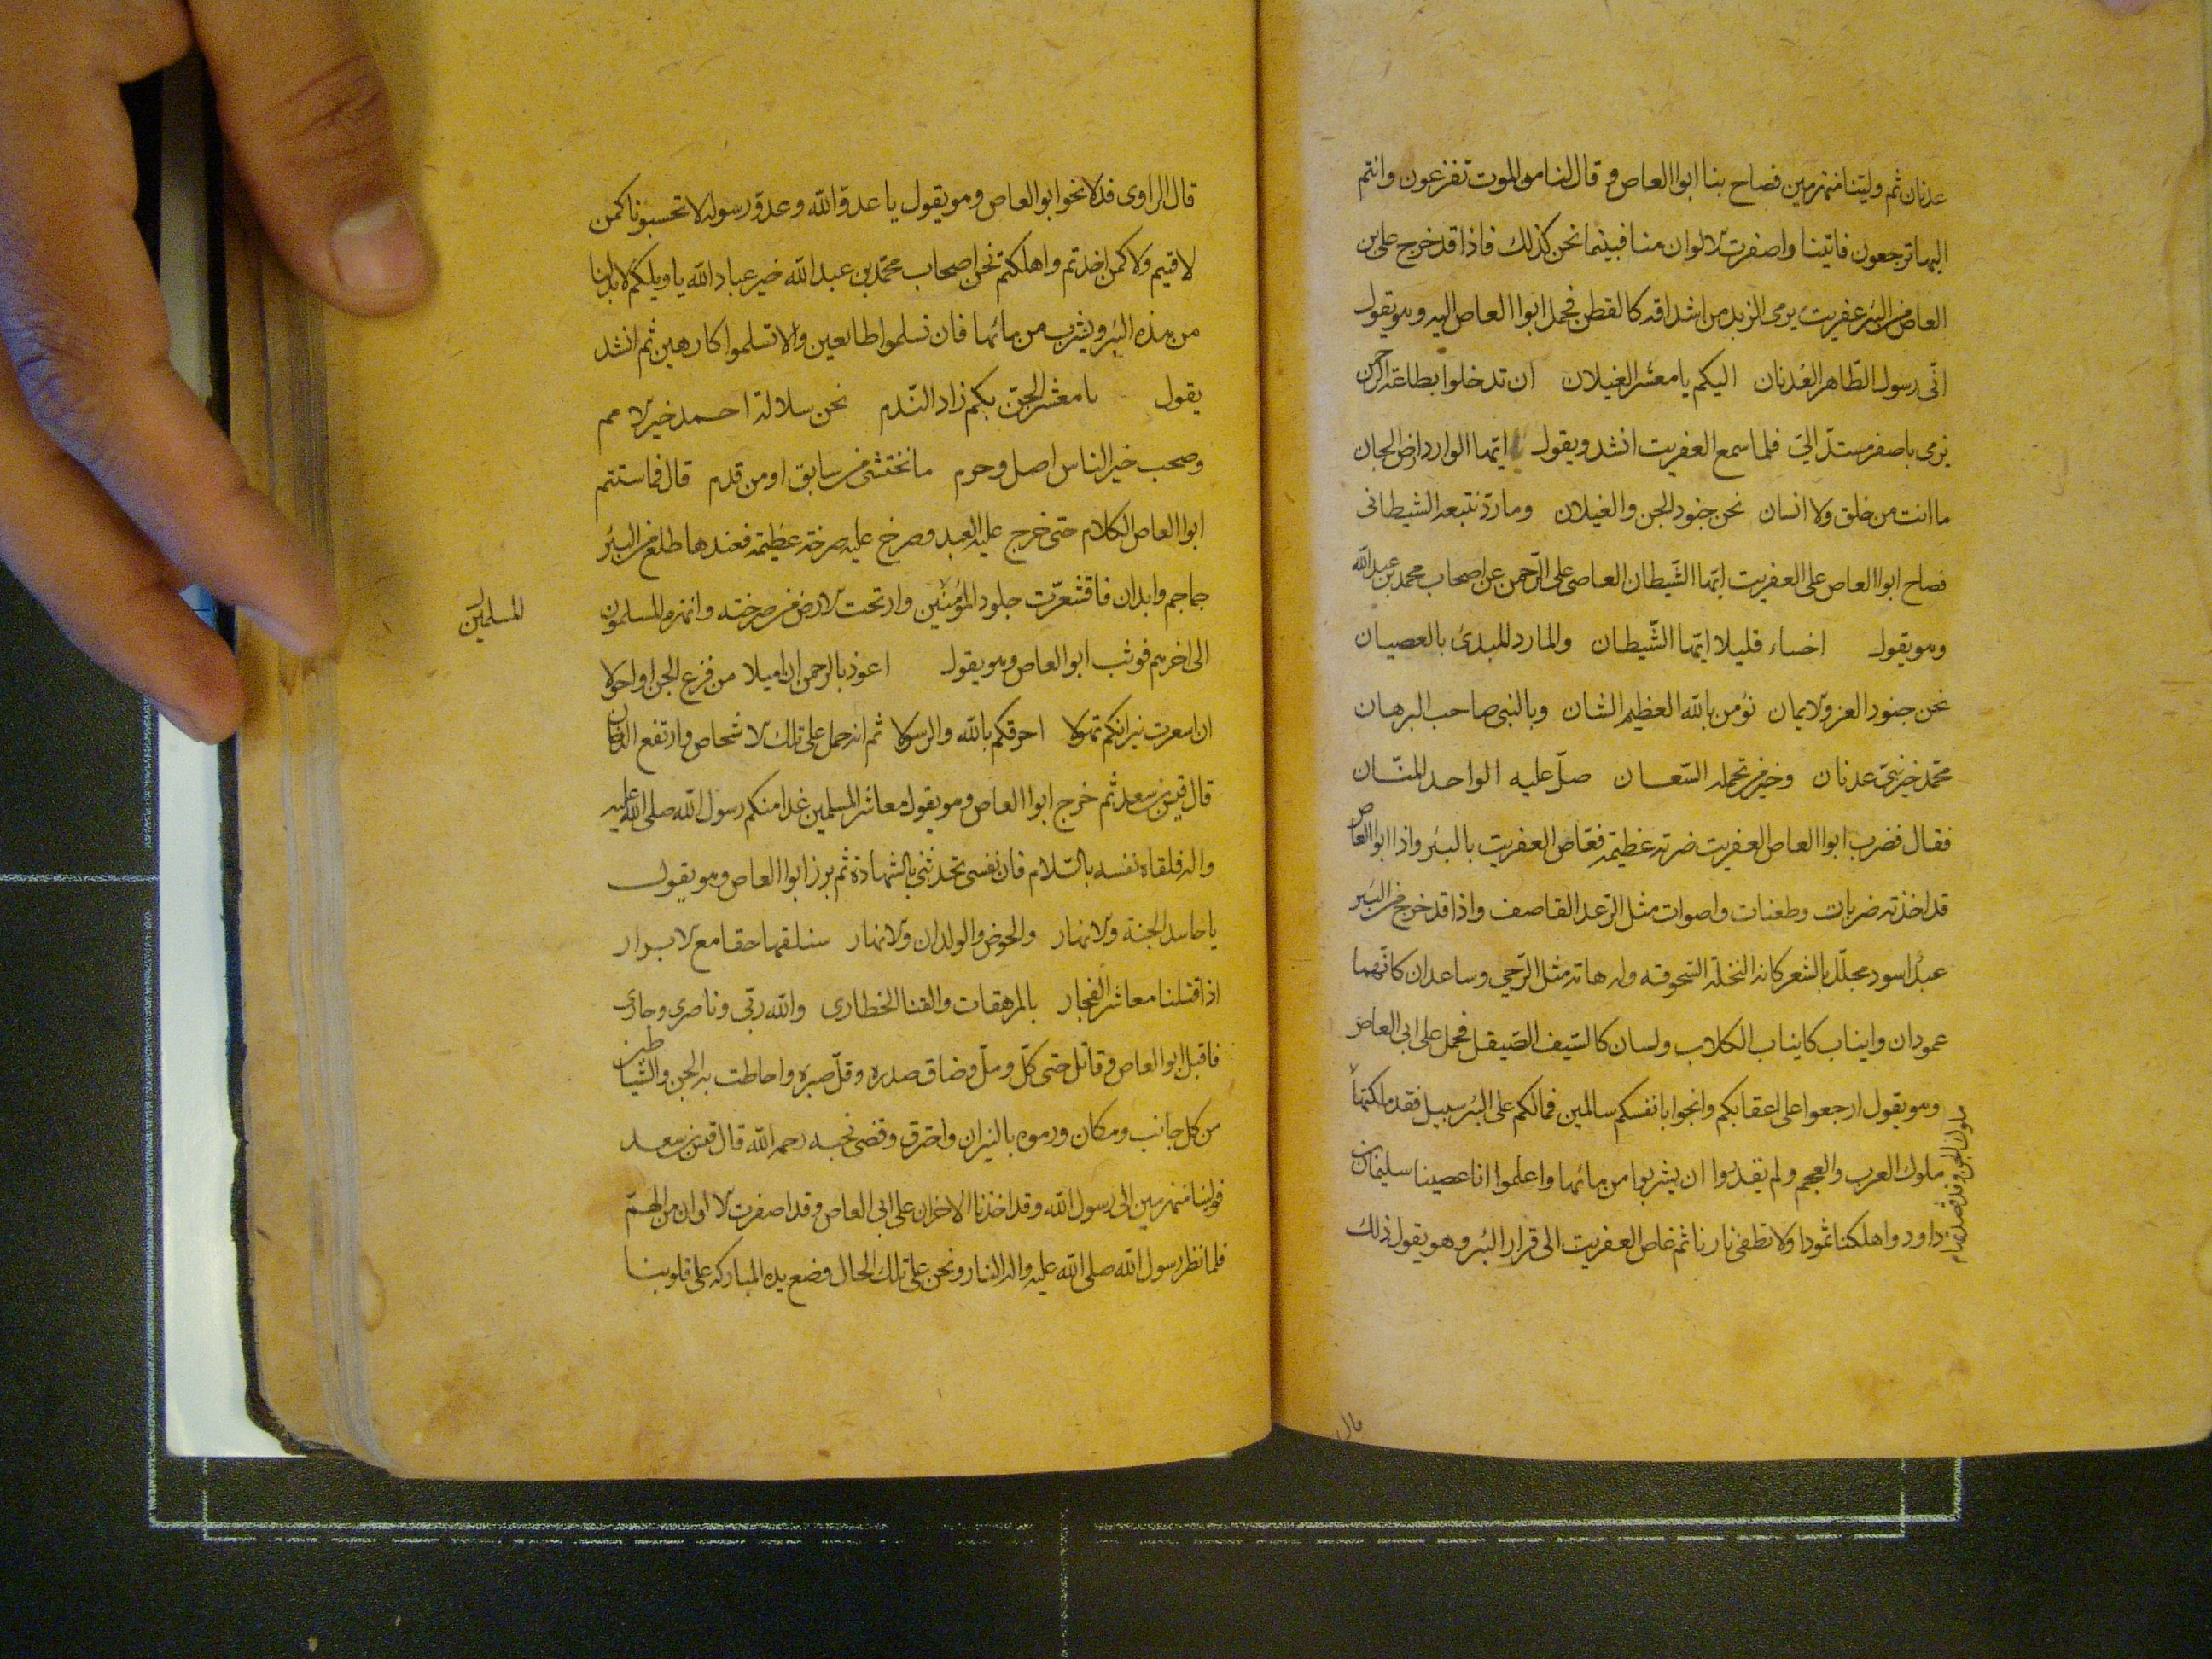 عدنان ثم ولينا منهزمين فصاح بنا ابوا العاص و قال لنا من الموت تفزعون وانتم
اليها ترجعون فاتينا واصفرت الالوان منا فبينما نحن كذلك فاذا قد خرج على بن
العاص من البئر عفريت يرمى الزبد من اشداقه كالقطن فحمل ابوا العاص اليه وهو يقول
انى رسول الطاهر العدنان اليكم يا معشر الغيلان ان تدخلوا بطاعة الرحمن
فلما سمع العفريت انشد ويقول يا ايها الوارد ارض الجان
ما انت من خلق ولا انسان نحن جنود الجن والغيلان ومارد نتبعه الشيطانى
فصاح ابوا العاص على العفريت ايها الشيطان العاصى على الرحمن عن اصحاب محمد بن عبد الله
وهو يقول اخساء قليلا ايها الشيطان والمارد المبدئ بالعصيان
نحن جنود العز والايمان نؤمن بالله العظيم الشان وبالنبى صاحب البرهان
محمد خير بنى عدنان وخير من تحمله صل عليه الواحد المنان
فقال فضرب ابوا العاص العفريت ضربة عظيمة فغاص العفريت بالبئر واذا ابوا العاص
قد اخذته ضربات وطعنات واصوات مثل الرعد القاصف واذا قد خرج من البئر
عبد اسود مجلل بالشعر كانه النخلة السحوقه وله هامة مثل الرحى وساعدان كانهما
عمودان وانياب كانياب الكلاب ولسان كالسيف الصيقل فحمل على ابى العاص
وهو يقول ارجعوا على اعقابكم وانجوا بانفسكم سالمين فمالكم على البئر سبيل فقد ملكتها
ملوك العرب والعجم ولم يقدروا ان يشربوا من مائها واعلموا انا عصينا سليمان بن
داود واهلكنا ثمودا ولا تطفى نارنا ثم غاص العفريت الى قرار البئر وهو يقول ذلك
قال
قال الراوى فدلا نحوا ابوا العاص وهو يقول يا عدو الله وعدو رسوله لا تحسبونا كمن
لاقيم ولا كمن اخذتم واهلكتم نحن اصحاب محمد بن عبد الله خير عباد الله يا ويلكم لابد لنا
من هذه البئر ويشرب من مائها فان تسلموا طايعين والا تسلموا كارهين ثم انشد
يقول يا معشر الجن بكم زاد الندم نحن سلالة احمد خير الامم
وصحب خير الناس اصل وحرم ما نختشى من سابق او من قدم قال فما استتم
ابوا العاص الكلام حتى خرج عليه العبد وصرخ عليه صرخة عظيمة فعندها طلع من البئر
جماجم وابدان فاقشعرت جلود المؤمنين وارتجت الارض من صرخته وانهزم المسلمون
المسلمين
الى اخرهم فوثب ابو العاص وهو يقول اعوذ بالرحمن ان اميلا من فزع الجن او احولا
ان اسعرت نيرانكم تهولا احرقكم بالله والرسولا ثم انه حمل على تلك الاشخاص وارتفع الدخان
قال قيس بن سعد ثم خرج ابوا العاص وهو يقول معاشر المسلمين غدا منكم رسول الله صلى الله عليه
واله فلقاه نفسه بالسلام فان نفسى تحدثنى بالشهادة ثم برز ابوا العاص وهو يقول
يا حاسد الجنة والانهار والحوض والولدان والانهار سنلقها حقا مع الابرار
اذا قتلنا معاشر الفجار بالمرهقات والقنا الخطارى والله ربى وناصرى وجارى
فاقبل ابوا العاص و قاتل حتى كل ومل وضاق صدره وقل صبره واحاطت به الجن والشياطين
من كل جانب ومكان ورموه بالنيران واحترق وقضى نحبه رحمه الله قال قيس بن سعد
فولينا منهزمين الى رسول الله وقد اخذنا الاحزان على ابى العاص وقد اصفرت الالوان من الهم
فلما نظر رسول الله صلى الله عليه واله الينا ونحن على تلك الحال وضع يده المباركه على قلوبنا